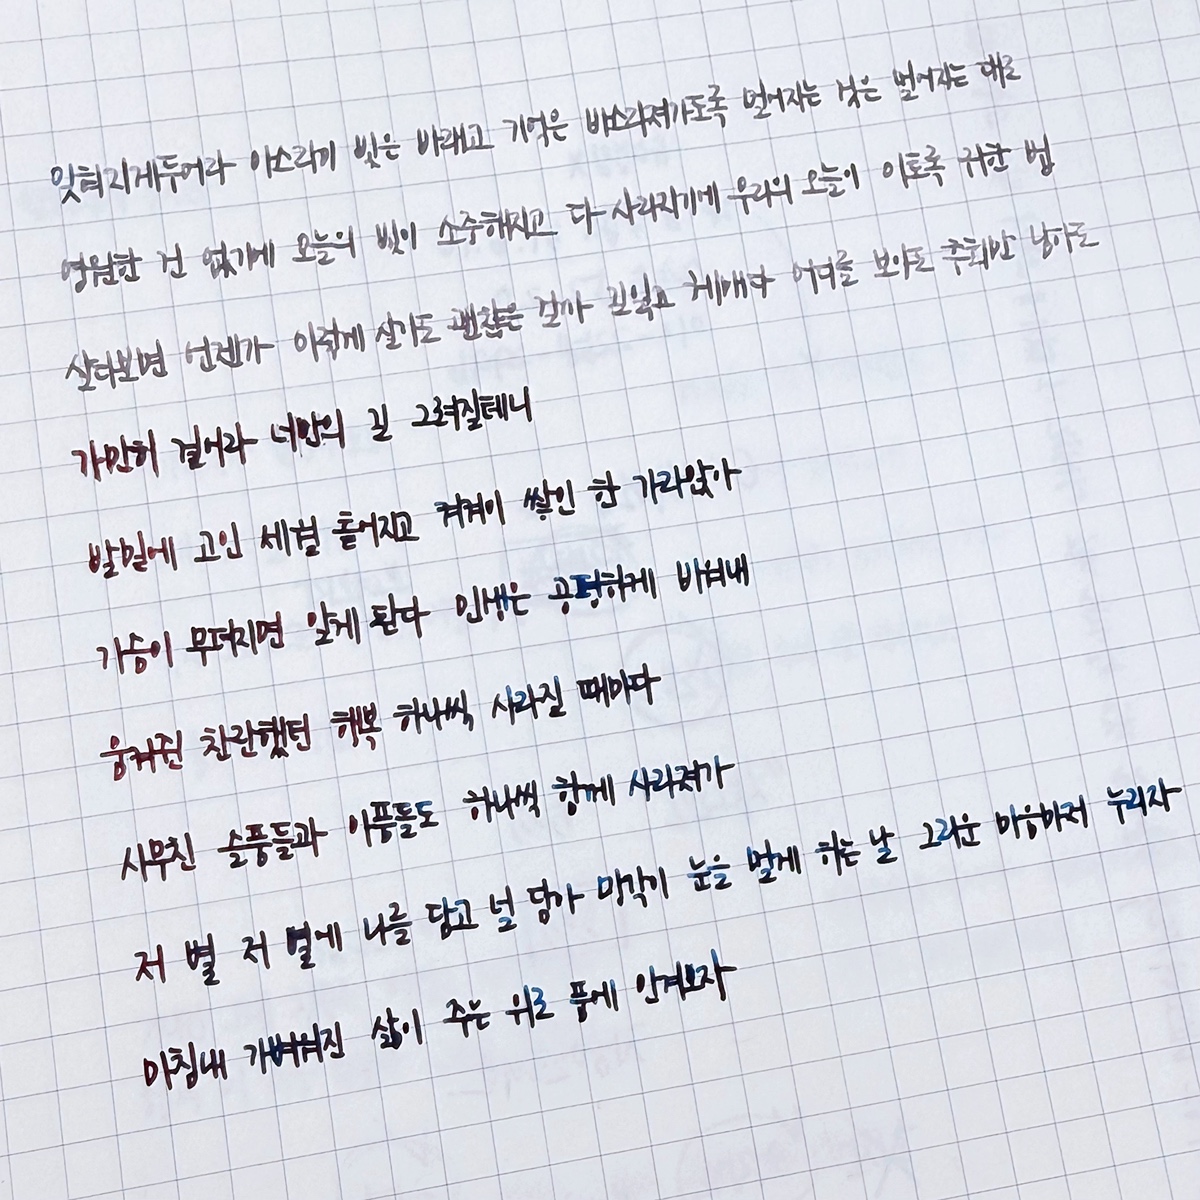 잊혀지게두어라 아스라이 빛은 바래고 기억은 바스라져가도록 멀어지는 것은 멀어지는 대로
영원한 건 없기에 오늘의 빛이 소중해지고 다 사라지기에 우리의 오늘이 이토록 귀한 법
살다보면 언젠가 이렇게 살아도 괜찮은 걸까 길잃고 헤매다 어디를 보아도 후회만 남아도
가만히 걸어라 너만의 길 그려질테니
발밑에 고인 세월 흩어지고 켜켜이 쌓인 한 가라앉아
가슴이 무뎌지면 알게 된다 인생은 공평하게 비워내
움켜쥔 찬란했던 행복 하나씩 사라질 때마다
사무친 슬픔들과 아픔들도 하나씩 함께 사라져가
저 별 저 별에 나를 담고 널 담아 망각이 눈을 멀게 하는 날 그리운 마음마저 누리자
마침내 가벼워진 삶이 주는 위로 품에 안겨보자